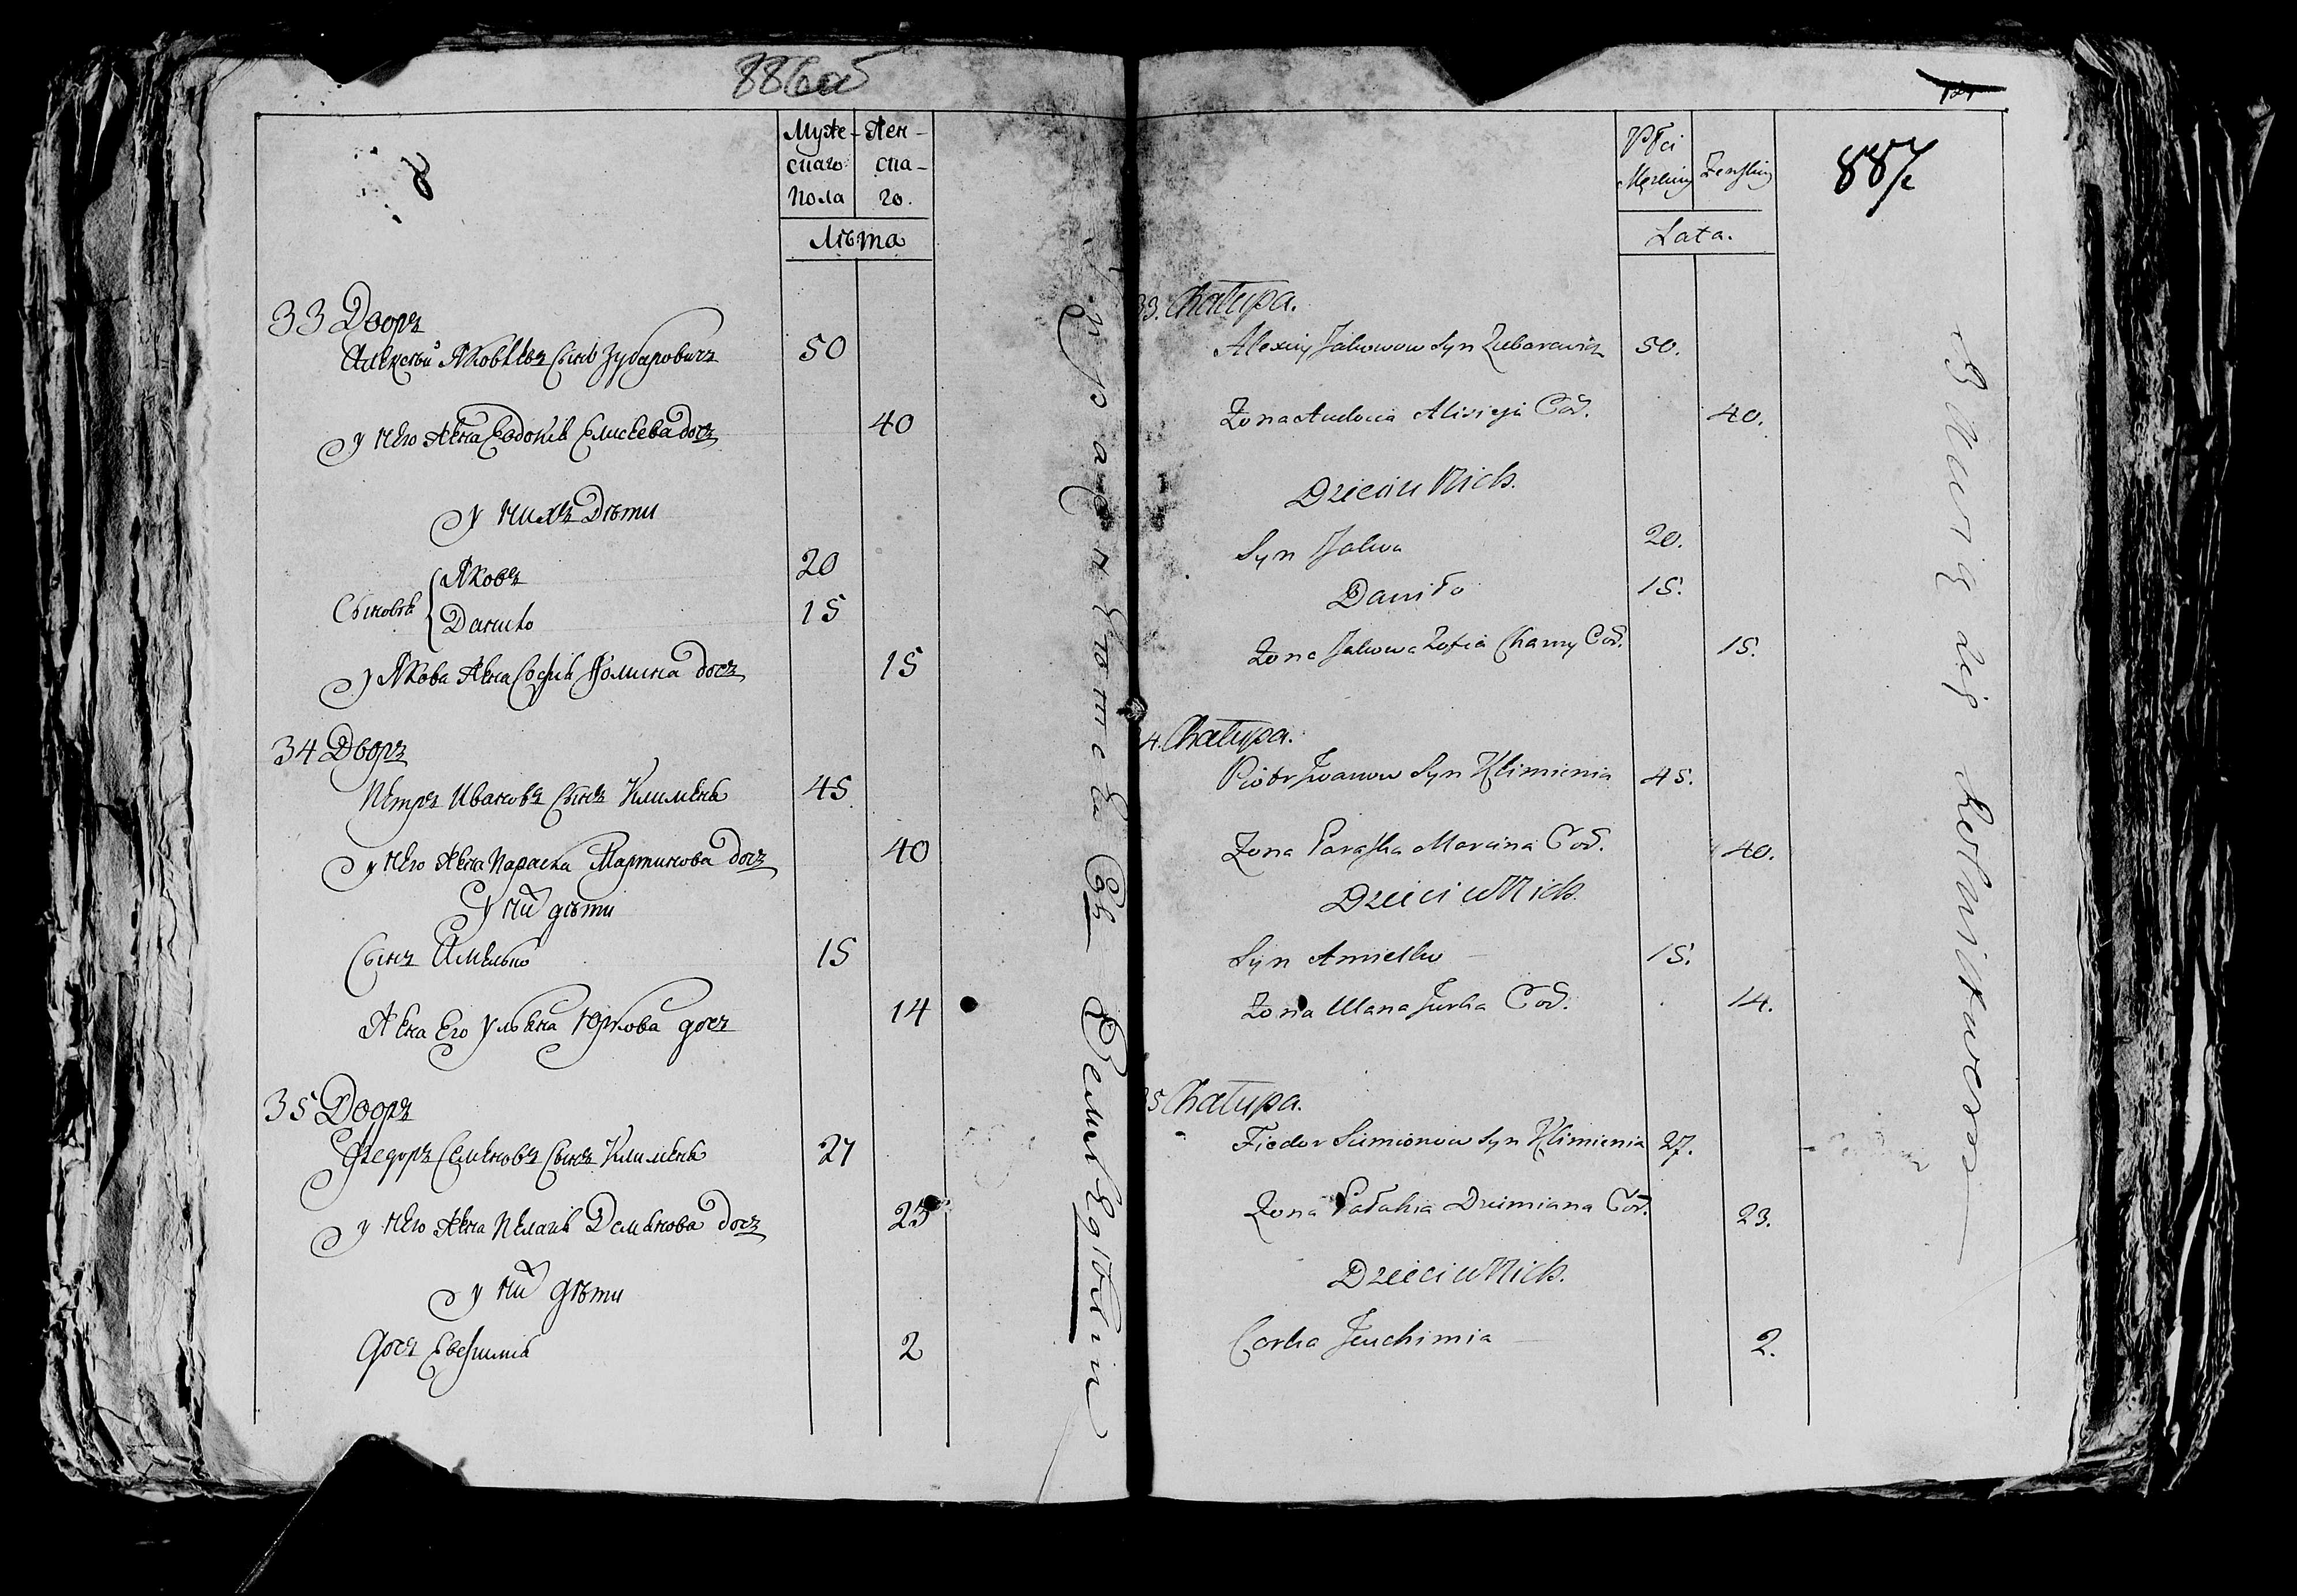 886об
Муже- Жен-
скаго ска-
пола го.
Лѣта
33 Дворъ
Алексѣй Яковлевъ сынъ Зубаровичъ 50
у него жена Евдокия Елисеева дочь 40
у нихъ дѣти
Сыновья
Яковъ 20
Данило 15
у Якова жена София Фомина дочь 15
34 Дворъ
Петръ Ивановъ сынъ Клименя 45
у него жена Параска Мартинова дочь 40
у них дѣти
Сынъ Амелько 15
Жена его Ульяна Юркова дочь 14
35 Дворъ
Федоръ Семеновъ сынъ Клименя 27
у него жена Пелагия Демьянова дочь 23
у них дѣти
дочь Евфимия 2
887
Płci
Męzkiey Zenskiey
Lata.
33. Chałupa.
Alexiey Jakowow Syn Zubarewicz 50.
Zona Audocia Alisieja Cod. 40.
Dzieci u Nich.
Syn Jakow 20.
Daniło 15.
Zona Jakowa Zofia Chamy Cod. 15.
4. Chałupa.
Piotr Jwanow Syn Klimienia 45.
Zona Paraska Marcina Cod. 40.
Dzieci u Nich.
Syn Amielko 15.
Zona Ulana Jurka Cod. 14.
35 Chałupa.
Fiedor Siemionow Syn Klimienia 27.
Zona Pałahia Dziemiana Cod. 23.
Dzieci u Nich.
Corka Jeuchimia 2.